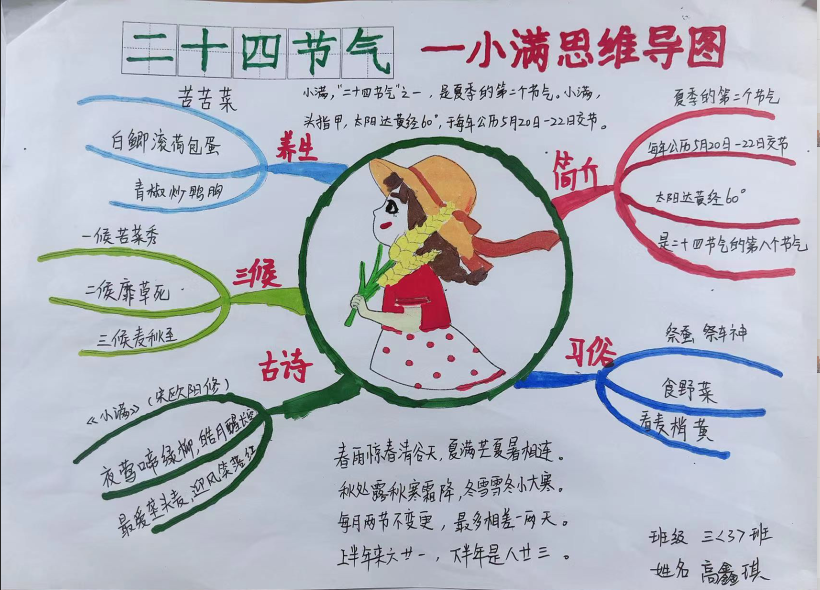 二十四节气 一小满思维导图
小满,"二十四节气"之一,是夏季的第二个节气。小满,
斗指甲,太阳达黄经60°,于每年公历5月20日-22日交节。
养生
苦苦菜
白鲫滚荷包蛋
青椒炒鸭胸
三候
一候苦菜秀
二候靡草死
三候麦秋至
古诗
《小满》(宋欧阳修)
夜莺啼绿柳,皓月醒长空
最爱垄头麦,迎风笑落红
简介
夏季的第二个节气
每年公历5月20日-22日交节
太阳达黄经60°
是二十四节气的第八个节气
习俗
祭蚕 祭车神
食野菜
看麦梢黄
春雨惊春清谷天,夏满芒夏暑相连。
秋处露秋寒霜降,冬雪雪冬小大寒。
每月两节不变更,最多相差一两天。
上半年来六廿一,下半年是八廿三。
班级 三<3>班
姓名 高鑫琪